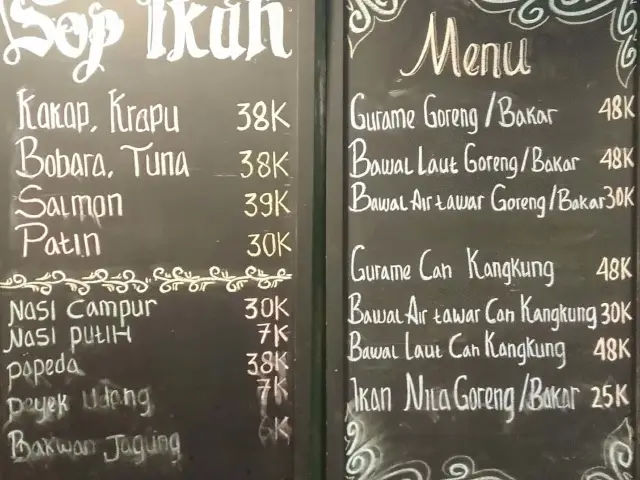 Sop Ikan
Kakap, Krapu 38K
Bobara, Tuna 38K
Salmon 39K
Patin 30K
Nasi Campur 30K
Nasi Putih 7K
papeda 38K
peyek udang 7K
Bakwan Jagung 6K
Menu
Gurame Goreng/Bakar 48K
Bawal Laut Goreng/Bakar 48K
Bawal Air tawar Goreng/Bakar 30K
Gurame Can Kangkung 48K
Bawal Air tawar Can Kangkung 30K
Bawal Laut Can Kangkung 48K
Ikan Nila Goreng/Bakar 25K